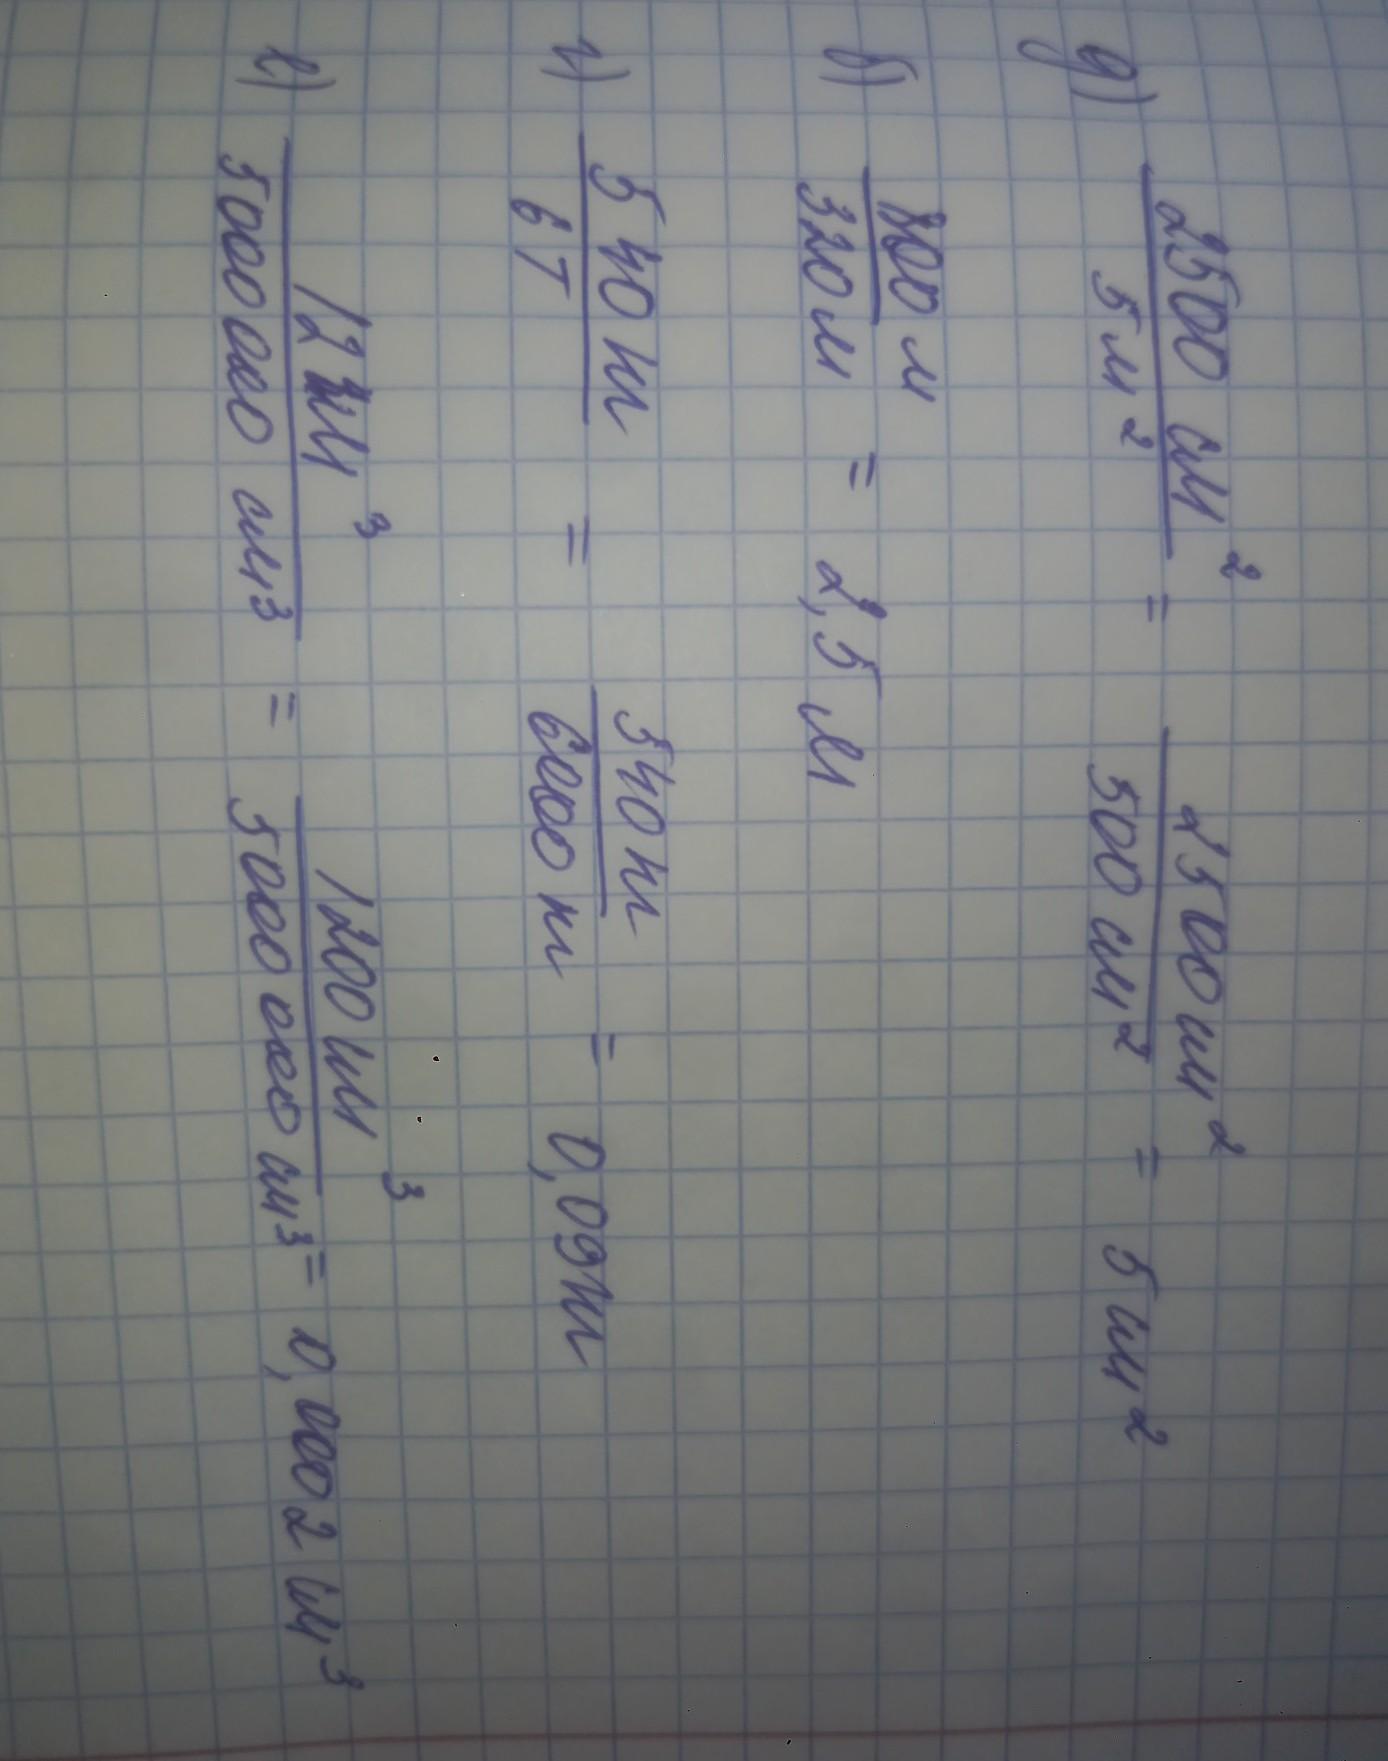 д) 2500 см² / 5 м² = 2500 см² / 500 см² = 5 см²
б) 800 м / 320 м = 2,5 м
г) 540 кг / 6 т = 540 кг / 6000 кг = 0,09 кг
е) 12 м³ / 5000 000 см³ = 1200 см³ / 5000 000 см³ = 0,0002 см³